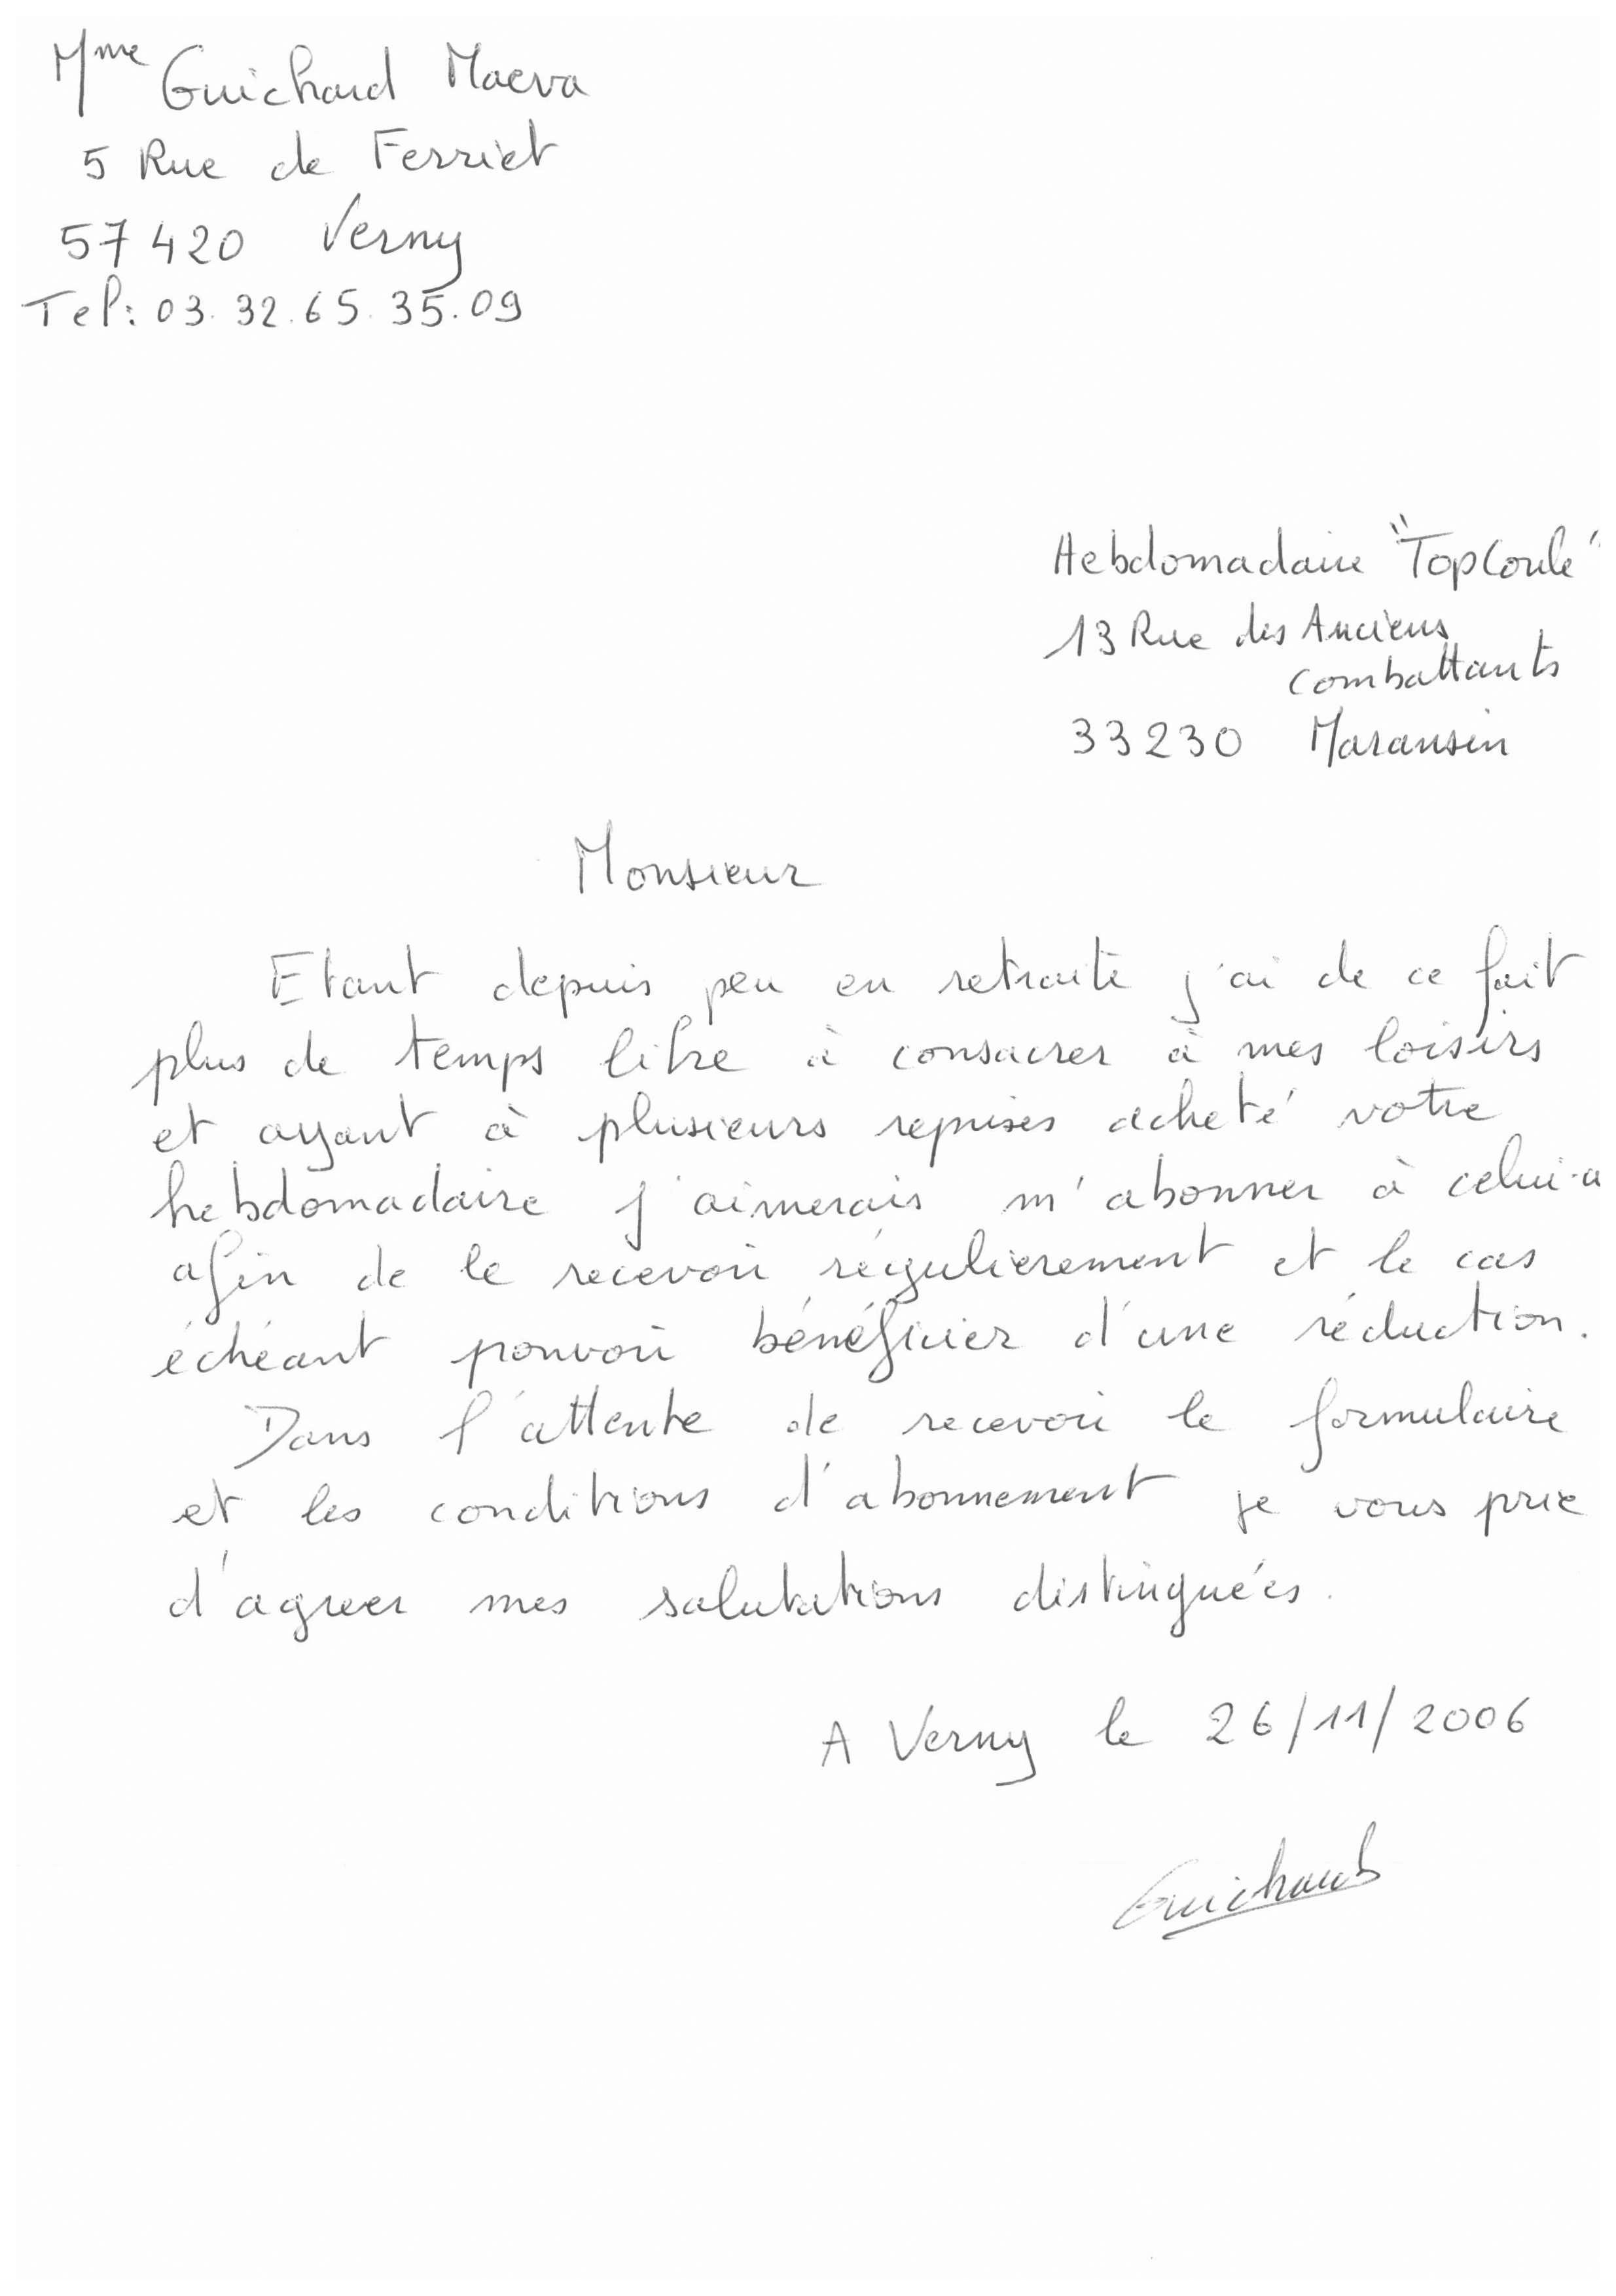 Mme Guichard Maeva
5 Rue de Ferriet
57420 Verny
Tel: 03.32.65.35.09
Hebdomadaire "TopCoule"
13 Rue des Anciens
Combattants
33230 Maransin
Monsieur
Etant depuis peu en retraite j'ai de ce fait
plus de temps libre à consacrer à mes loisirs
et ayant à plusieurs reprises acheté votre
hebdomadaire j'aimerais m'abonner à celui-ci
afin de le recevoir régulierement et le cas
échéant pouvoir bénéficier d'une réduction.
Dans l'attente de recevoir le formulaire
et les conditions d'abonnement je vous prie
d'agreer mes salutations distinguées.
A Verny le 26/11/2006
Guichard